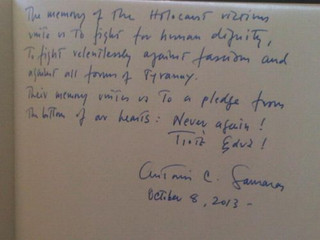 The memory of the Holocaust victims
unite us to fight for human dignity,
to fight relentlessly against fascism and
against all forms of Tyranny.
Their memory unites us to a pledge from
the bottom of our hearts: Never again!
Ποτέ ξανά!
Antonis C. Samaras
October 8, 2013 -